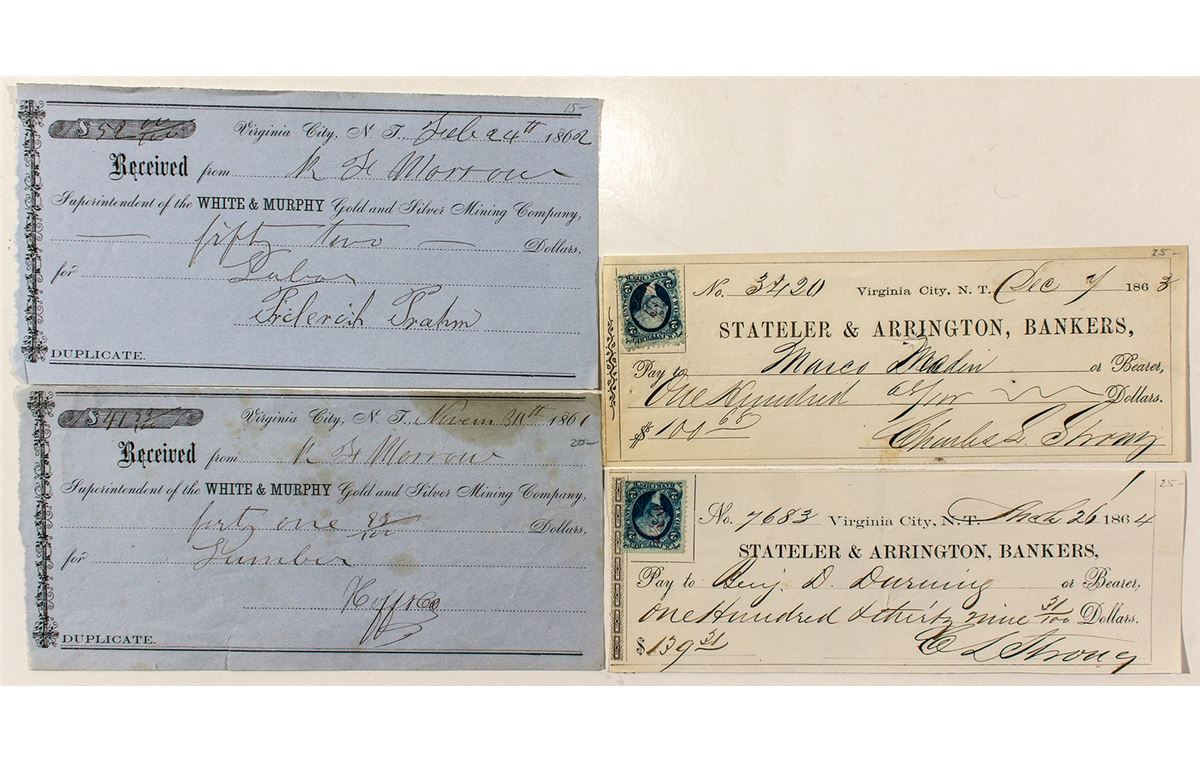 15-
$52 00/100 Virginia City, N. T. Feb 24th 1862
Received from R H Morrow
Superintendent of the WHITE & MURPHY Gold and Silver Mining Company,
fifty two Dollars,
for Labor
Frederick Prahm
DUPLICATE.
$41 Virginia City, N. T. 30th 1861
20-
Received from R H Morrow
Superintendent of the WHITE & MURPHY Gold and Silver Mining Company,
forty one Dollars,
for Lumber
DUPLICATE.
25-
No. 3420 Virginia City, N. T. Dec 7 1863
STATELER & ARRINGTON, BANKERS,
Pay to Marco Medin or Bearer,
One Hundred 65/100 Dollars.
$100 65
Charles L. Strong
25-
No. 7683 Virginia City, N. T. Mch 26 1864
STATELER & ARRINGTON, BANKERS,
Pay to Benj. D. Durning or Bearer,
One Hundred & thirty nine 31/100 Dollars.
$139 31
C L Strong